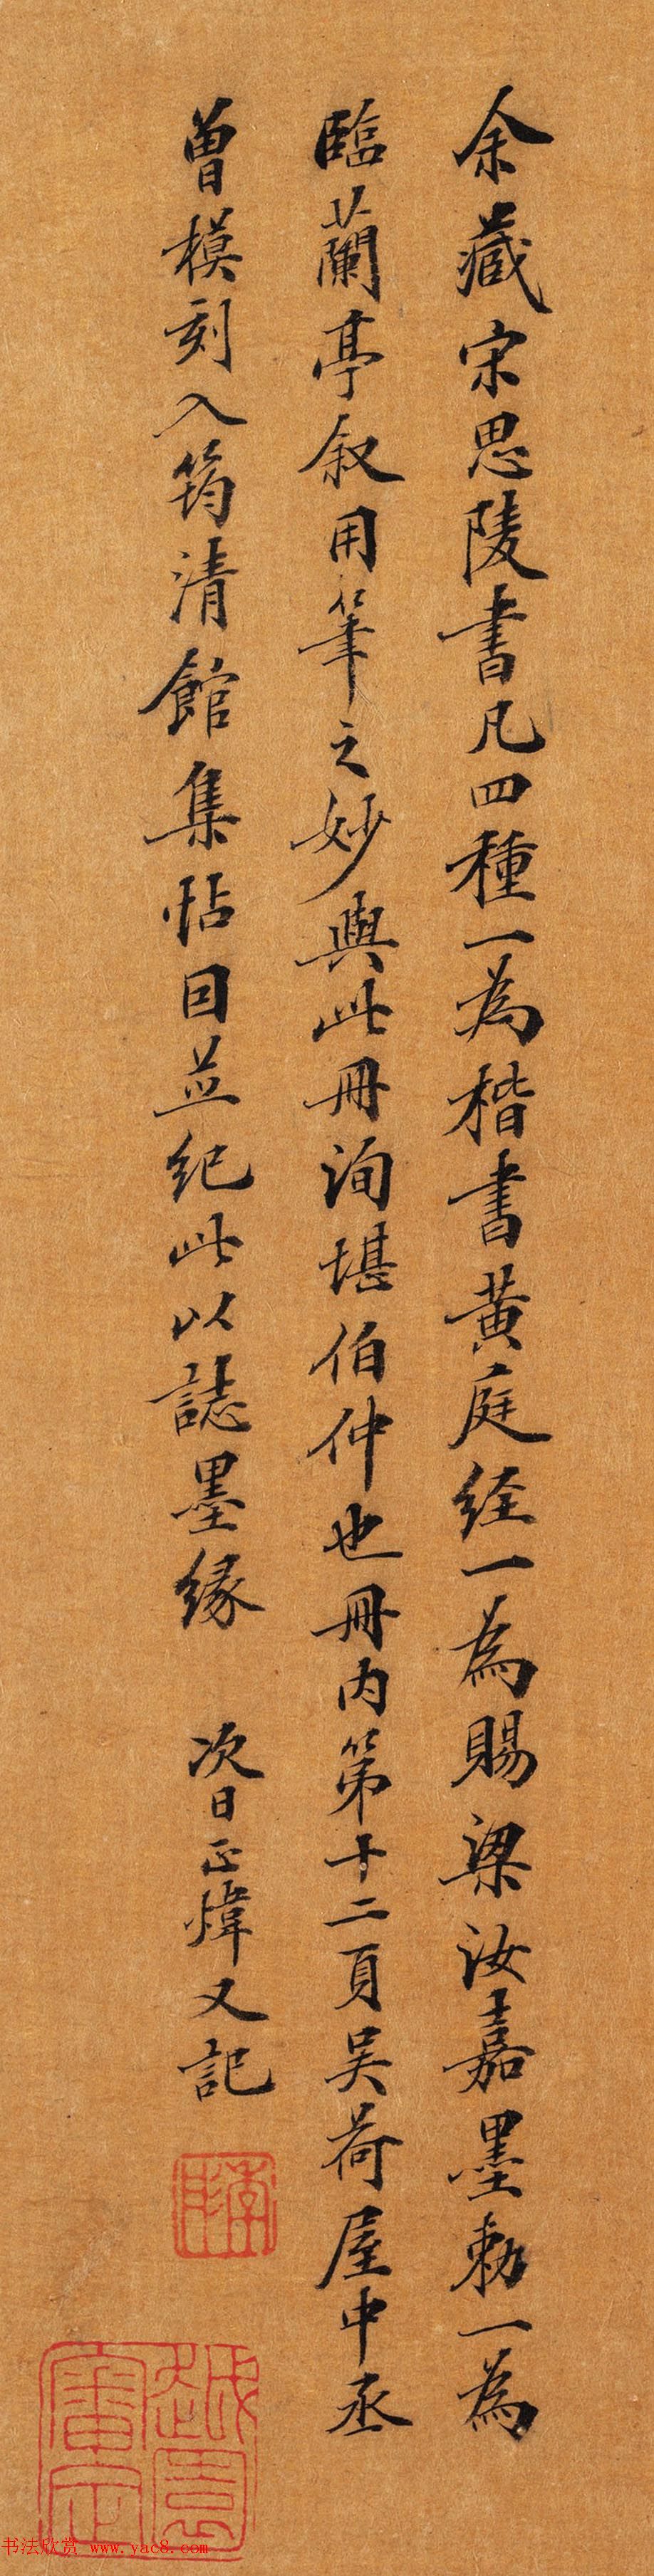 余藏宋思陵書凡四種一為楷書黃庭經一為賜梁汝嘉墨勅一為
臨蘭亭叙用筆之妙與此冊洵堪伯仲也冊内第十二頁吴荷屋中丞
曾模刻入筠清館集帖因並紀此以誌墨緣
次日正煒又記
季彤
越園審定
书法欣赏 www.yac8.com